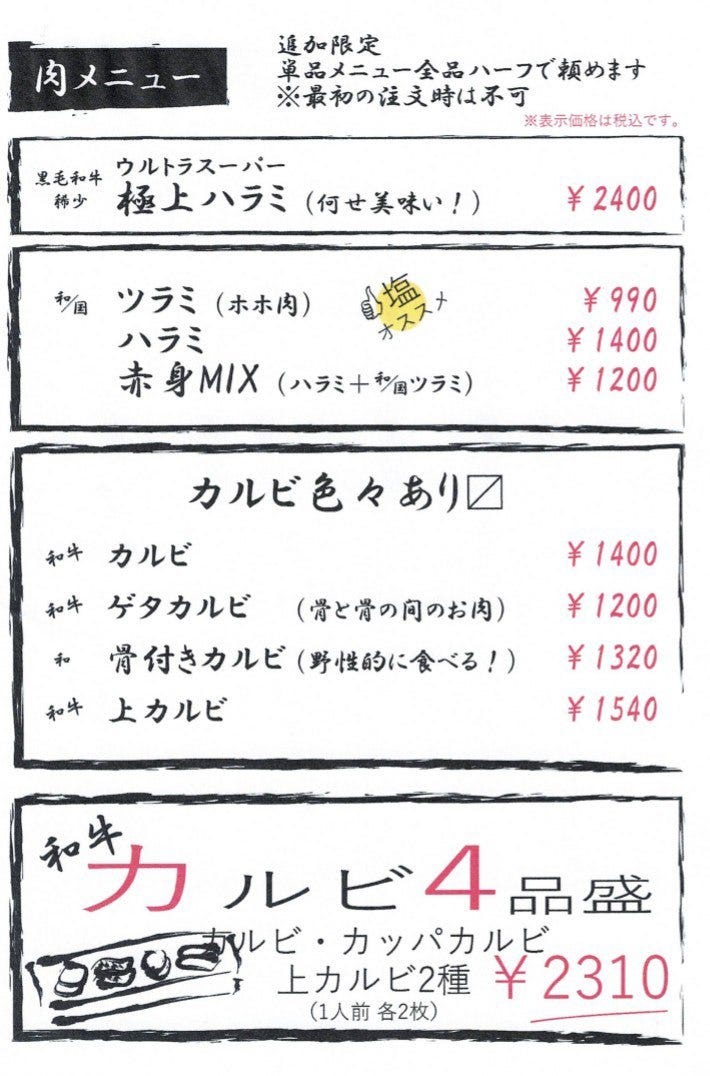 肉メニュー
追加限定
単品メニュー全品ハーフで頼めます
※最初の注文時は不可
※表示価格は税込です。
黒毛和牛
稀少
ウルトラスーパー
極上ハラミ(何せ美味い!) ¥2400
和/国 ツラミ(ホホ肉) ¥990
塩
オススメ
ハラミ ¥1400
赤身MIX(ハラミ+和/国ツラミ) ¥1200
カルビ色々あり〼
和牛 カルビ ¥1400
和牛 ゲタカルビ (骨と骨の間のお肉) ¥1200
和 骨付きカルビ(野性的に食べる!) ¥1320
和牛 上カルビ ¥1540
和牛
カルビ4品盛
カルビ・カッパカルビ
上カルビ2種 ¥2310
(1人前 各2枚)